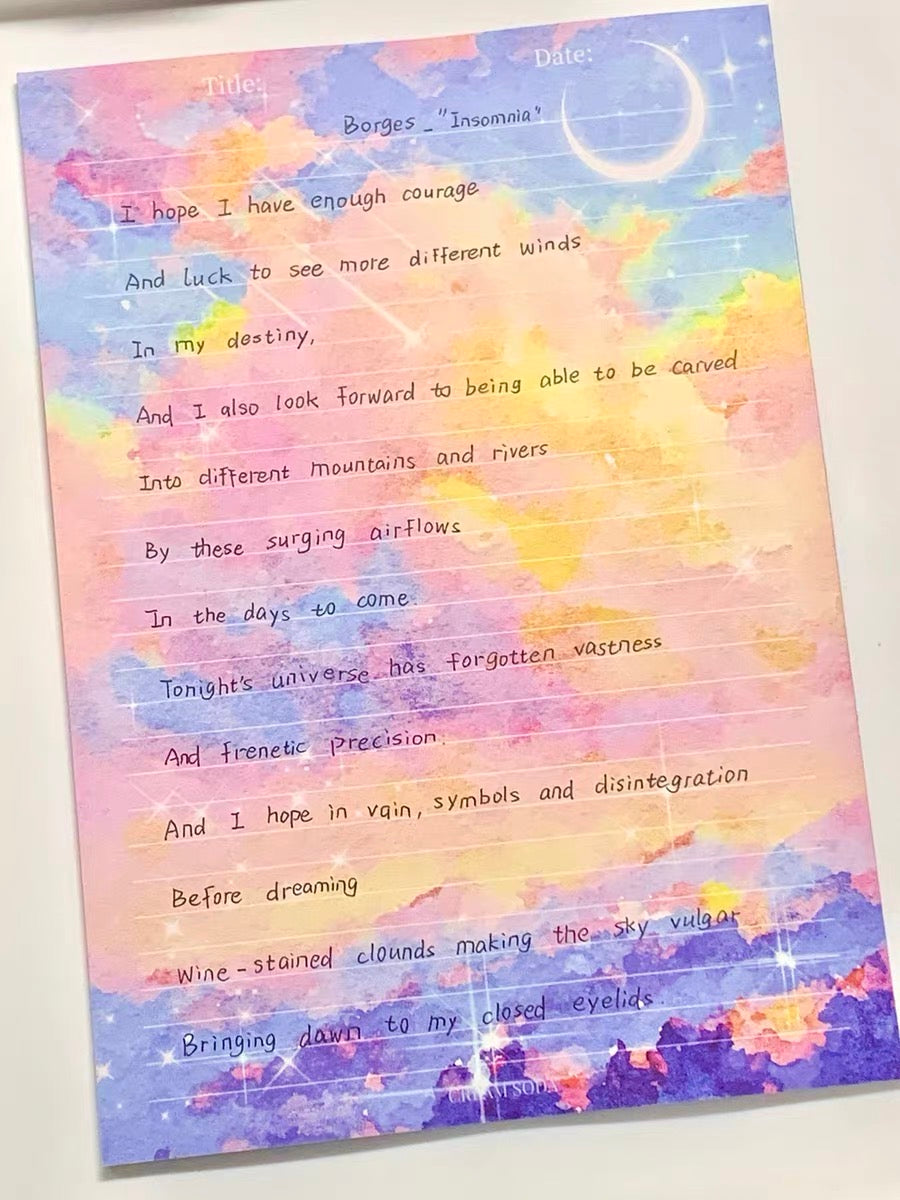 Title:
Date:
Borges - "Insomnia"
I hope I have enough courage
And luck to see more different winds
In my destiny,
And I also look forward to being able to be carved
Into different mountains and rivers
By these surging airflows
In the days to come.
Tonight's universe has forgotten vastness
And frenetic precision.
And I hope in vain, symbols and disintegration
Before dreaming
Wine-stained clounds making the sky vulgar
Bringing dawn to my closed eyelids.
CREAM SODA